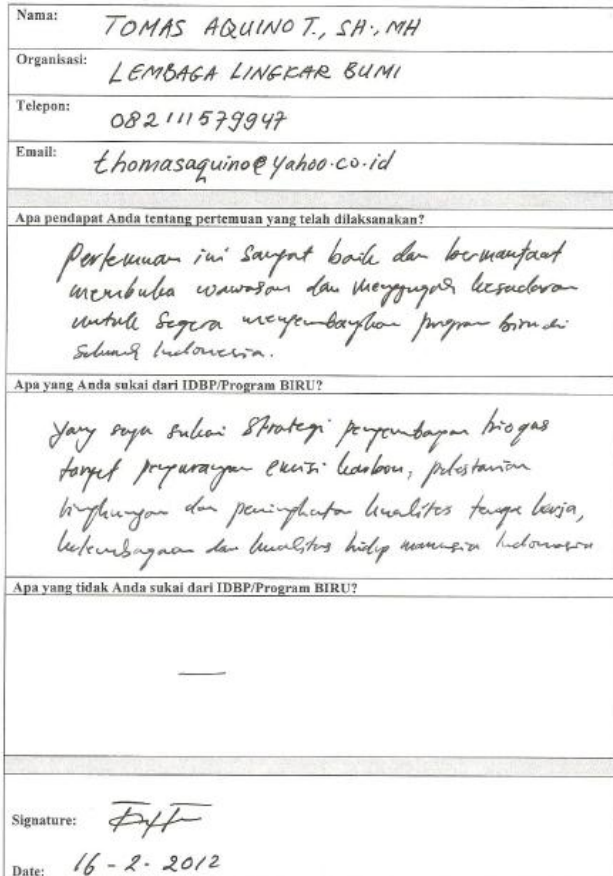 Nama: TOMAS AQUINO T., SH., MH
Organisasi: LEMBAGA LINGKAR BUMI
Telepon: 082111579947
Email: thomasaquino@yahoo.co.id
Apa pendapat Anda tentang pertemuan yang telah dilaksanakan?
Pertemuan ini sangat baik dan bermanfaat
membuka wawasan dan menggugah kesadaran
untuk segera mengembangkan program biru di
seluruh Indonesia.
Apa yang Anda sukai dari IDBP/Program BIRU?
Yang saya sukai Strategi pengembangan biogas
target pengurangan emisi karbon, pelestarian
lingkungan dan peningkatan kualitas tenaga kerja,
kelembagaan dan kualitas hidup manusia Indonesia
Apa yang tidak Anda sukai dari IDBP/Program BIRU?
—
Signature:
Date: 16 - 2 - 2012